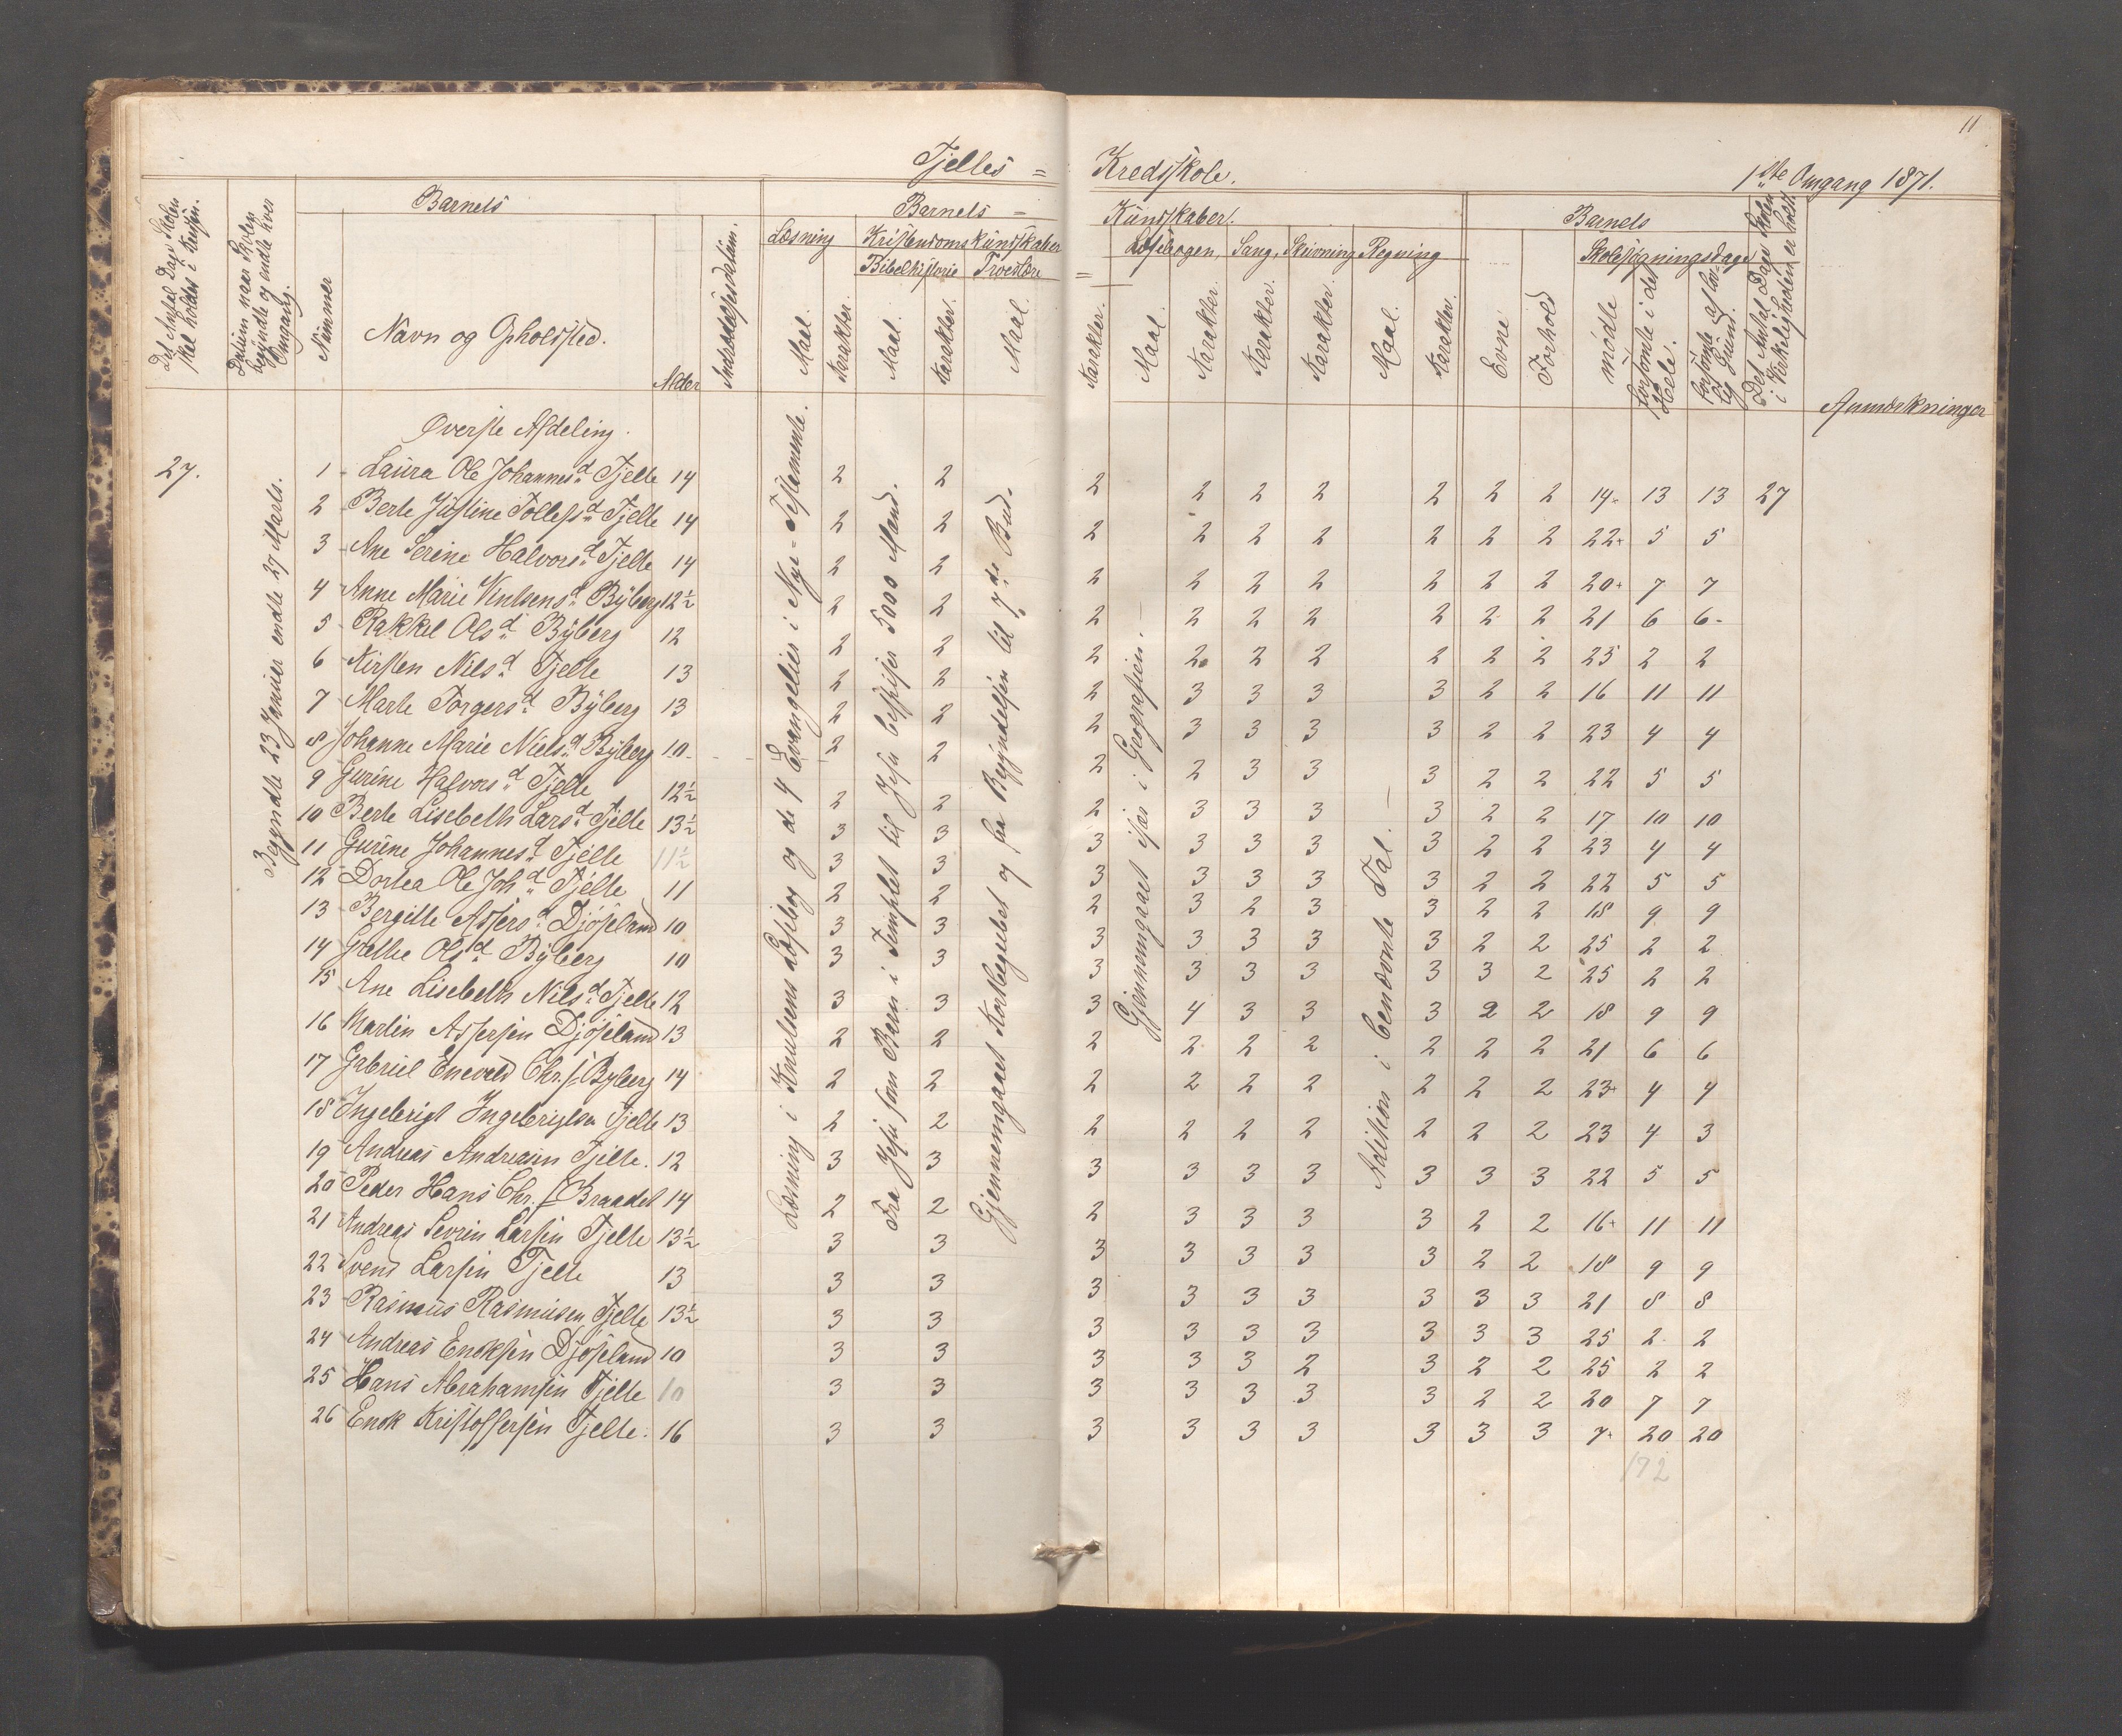 11
Tjelles = Kredsskole.
1ste Omgang 1871.
Det Antal Dage Skolen skal holdes i Kredsen.
Datum naar Skolen begyndte og endte hver Omgang.
Barnets
Nummer
Navn og Opholdssted.
Alder
Indtrædelsesdatum.
Barnets = Kundskaber.
Læsning
Maal.
Karakter.
Kristendomskundskaber
Bibelhistorie
Maal.
Karakter.
Troeslære
Maal.
Karakter.
Læsebogen.
Maal.
Karakter.
Sang.
Karakter.
Skrivning
Karakter.
Regning
Maal.
Karakter.
Barnets
Evne
Forhold
Skolesøgningsdage
mødte
forsømte i det Hele.
forsømte af lovlig Grund.
Det Antal Dage Skolen i Virkeligheden er holdt
Anmærkninger
Øverste Afdeling.
27.
Begyndte 23 Januar endte 27 Marts.
Læsning i Knutsens Læsebog og de 4 Evangelier i Nye-Testamente.
Fra Jesu som Barn i Templet til Jesu bespiser 5000 Mand.
Gjennemgaaet Kortbegrebet og fra Begyndelsen til 7de Bud.
Gjennemgaaet især i Geografien. —
Adition i benævnte Tal. —
1 Laura Ole Johannesd. Tjelte 14 2 2 2 2 2 2 2 2 2 14 13 13 27
2 Berte Justine Tollefsd. Tjelte 14 2 2 2 2 2 2 2 2 2 22 5 5
3 Ane Serine Halvorsd. Tjelte 14 2 2 2 2 2 2 2 2 2 20 7 7
4 Anne Marie Knutsensd. Byberg 12½ 2 2 2 2 2 2 2 2 2 21 6 6
5 Rakkel Olsd. Byberg 12 2 2 2 2 2 2 2 2 2 25 2 2
6 Kirsten Nilsd. Tjelte 13 2 2 2 3 3 3 3 2 2 16 11 11
7 Marte Torgersd. Byberg 13 2 2 2 3 3 3 3 2 2 23 4 4
8 Johanne Marie Nielsd. Byberg 10 2 2 2 2 3 3 3 2 2 22 5 5
9 Gurine Halvorsd. Tjelte 12½ 2 2 2 3 3 3 3 2 2 17 10 10
10 Berte Lisebeth Larsd. Tjelte 13½ 3 3 3 3 3 3 3 2 2 23 4 4
11 Gurine Johannesd. Tjelte 11½ 3 3 3 3 3 3 3 2 2 22 5 5
12 Dortea Ole Johd. Tjelte 11 2 2 2 3 2 3 3 2 2 18 9 9
13 Bergitte Assersd. Djøseland 10 3 3 3 3 3 3 3 2 2 25 2 2
14 Grethe Olsd. Byberg 10 3 3 3 3 3 3 3 3 2 25 2 2
15 Ane Lisebeth Nilsd. Tjelte 12 3 3 3 4 3 3 3 2 2 18 9 9
16 Martin Assersen Djøseland 13 2 2 2 2 2 2 2 2 2 21 6 6
17 Gabriel Enevald Chr.s. Byberg 14 2 2 2 2 2 2 2 2 2 23 4 4
18 Ingebrigt Ingebrigtsen Tjelte 13 2 2 2 2 2 2 2 2 2 23 4 3
19 Andreas Andreasen Tjelte. 12 3 3 3 3 3 3 3 3 3 22 5 5
20 Peder Hans Chr. s. Braadet 14 2 2 2 3 3 3 3 2 2 16 11 11
21 Andreas Sevrin Larsen Tjelte 13½ 3 3 3 3 3 3 3 2 2 18 9 9
22 Svend Larsen Tjelte 13 3 3 3 3 3 3 3 3 3 21 8 8
23 Rasmus Rasmusen Tjelte 13½ 3 3 3 3 3 3 3 3 3 25 2 2
24 Andreas Enoksen Djøseland 10 3 3 3 3 3 2 3 2 2 25 2 2
25 Hans Abrahamsen Tjelte 10 3 3 3 3 3 3 3 2 2 20 7 7
26 Enok Kristoffersen Tjelte. 16 3 3 3 3 3 3 3 3 3 7 20 20
172